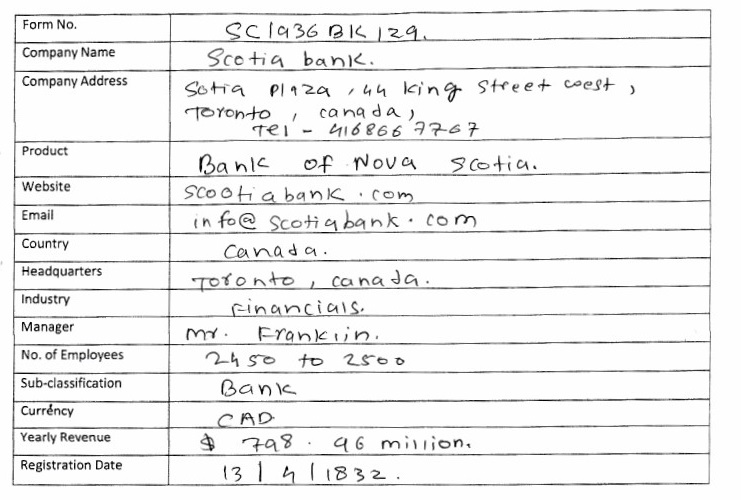 Form No. SC1936BK129.
Company Name Scotia bank.
Company Address Sotia Plaza, 44 king street west,
Toronto, canada,
Tel - 4168667767
Product Bank of Nova Scotia.
Website scootiabank.com
Email info@scotiabank.com
Country Canada.
Headquarters Toronto, canada.
Industry Financials.
Manager Mr. Franklin.
No. of Employees 2450 to 2500
Sub-classification Bank
Currency CAD
Yearly Revenue $ 798.96 million.
Registration Date 13/4/1832.